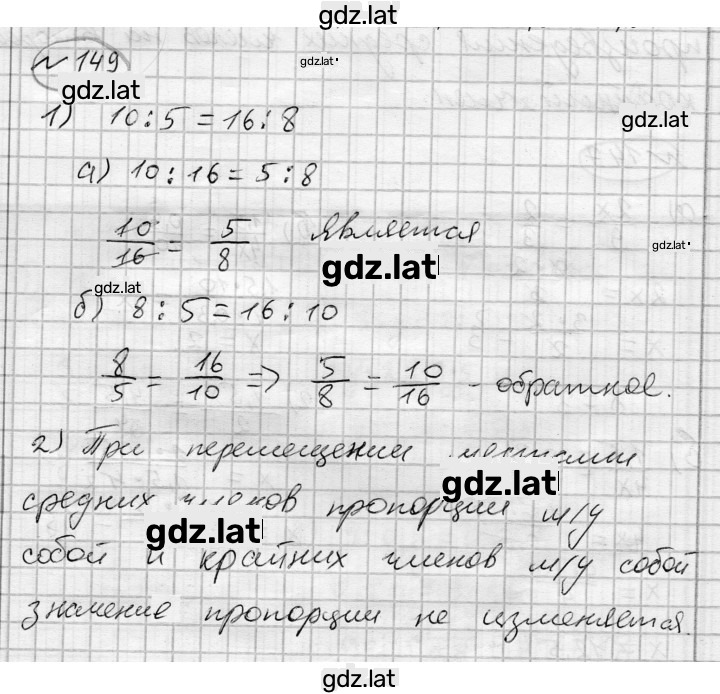 gdz.lat
№ 149
gdz.lat
gdz.lat
1) 10:5=16:8
gdz.lat
а) 10:16=5:8
10/16 = 5/8 является
gdz.lat
gdz.lat
gdz.lat
б) 8:5=16:10
8/5 = 16/10 => 5/8 = 10/16 - обратное.
2) При перемещении местами
gdz.lat
средних членов пропорции м/у
gdz.lat
собой и крайних членов м/у собой
значение пропорции не изменяется.
gdz.lat